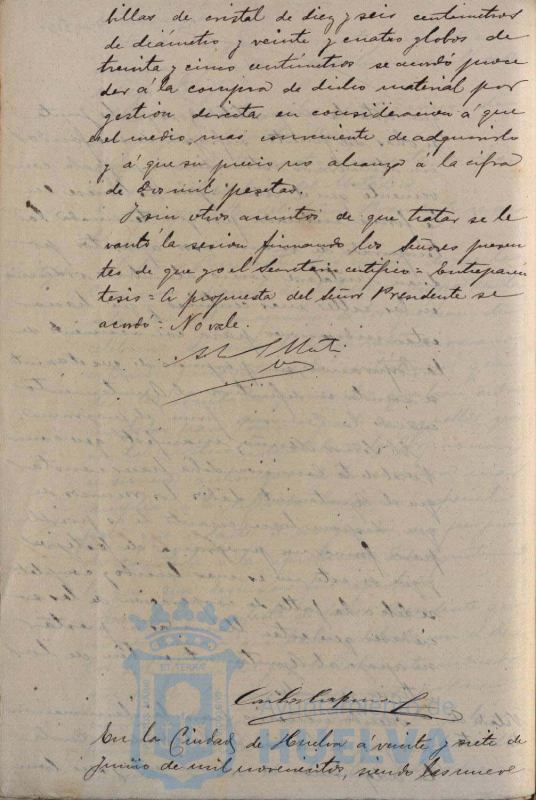 billas de cristal de diez y seis centimetros
de diámetro y veinte y cuatro globos de
treinta y cinco centímetros se acordó proce
der á la compra de dicho material por
gestión directa en consideracion á que
el medio mas conveniente de adquirirlo
y á que su precio no alcanza á la cifra
de dos mil pesetas.
Y sin otros asuntos de que tratar se le
vantó la sesion firmando los Señores presen
tes de que yo el Secretario certifico = Entreparen
tesis = A propuesta del Señor Presidente se
acordó = No vale.
ET TERRA
Ayuntamiento de
HUELVA
En la Ciudad de Huelva á veinte y siete de
Junio de mil novecientos, siendo las nueve